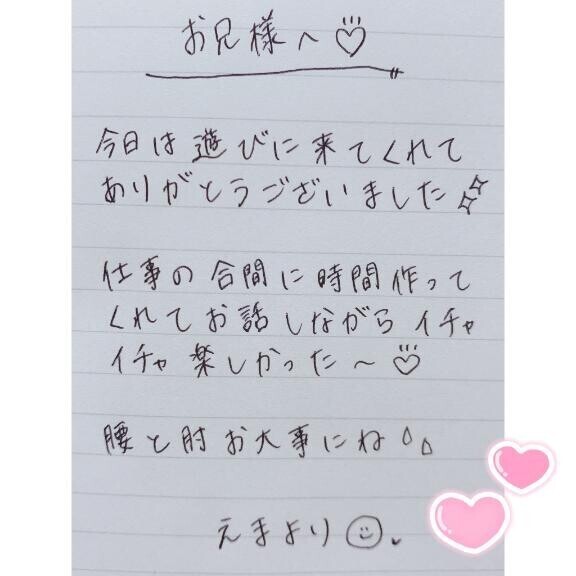 お兄様へ♡
今日は遊びに来てくれて
ありがとうございました
仕事の合間に時間作って
くれてお話しながらイチャ
イチャ楽しかった〜♡
腰と肘お大事にね
えまより